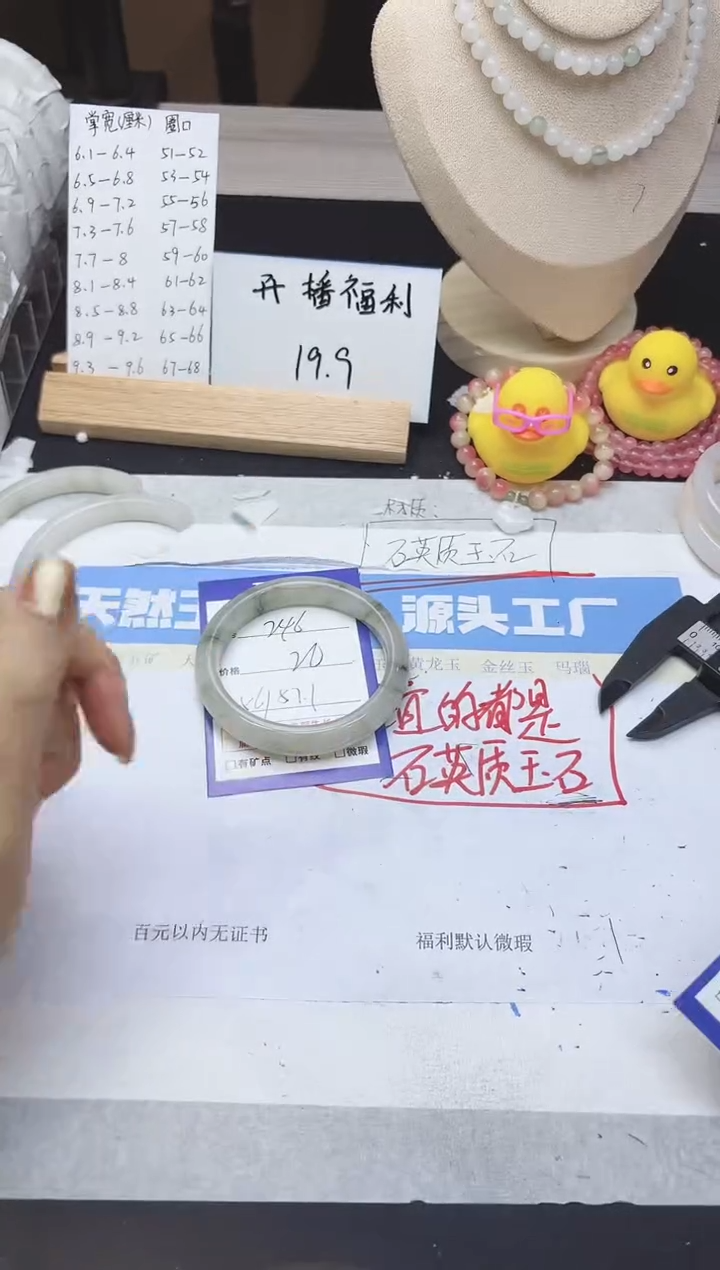 掌宽(厘米) 圈口
6.1-6.4 51-52
6.5-6.8 53-54
6.9-7.2 55-56
7.3-7.6 57-58
7.7-8 59-60
8.1-8.4 61-62
8.5-8.8 63-64
8.9-9.2 65-66
9.3-9.6 67-68
开播福利
19.9
材质:
石英质玉石
天然玉
源头工厂
黄龙玉 金丝玉 玛瑙
246
价格 20
宜的都是
石英质玉石
有矿点 有纹 微瑕
百元以内无证书
福利默认微瑕